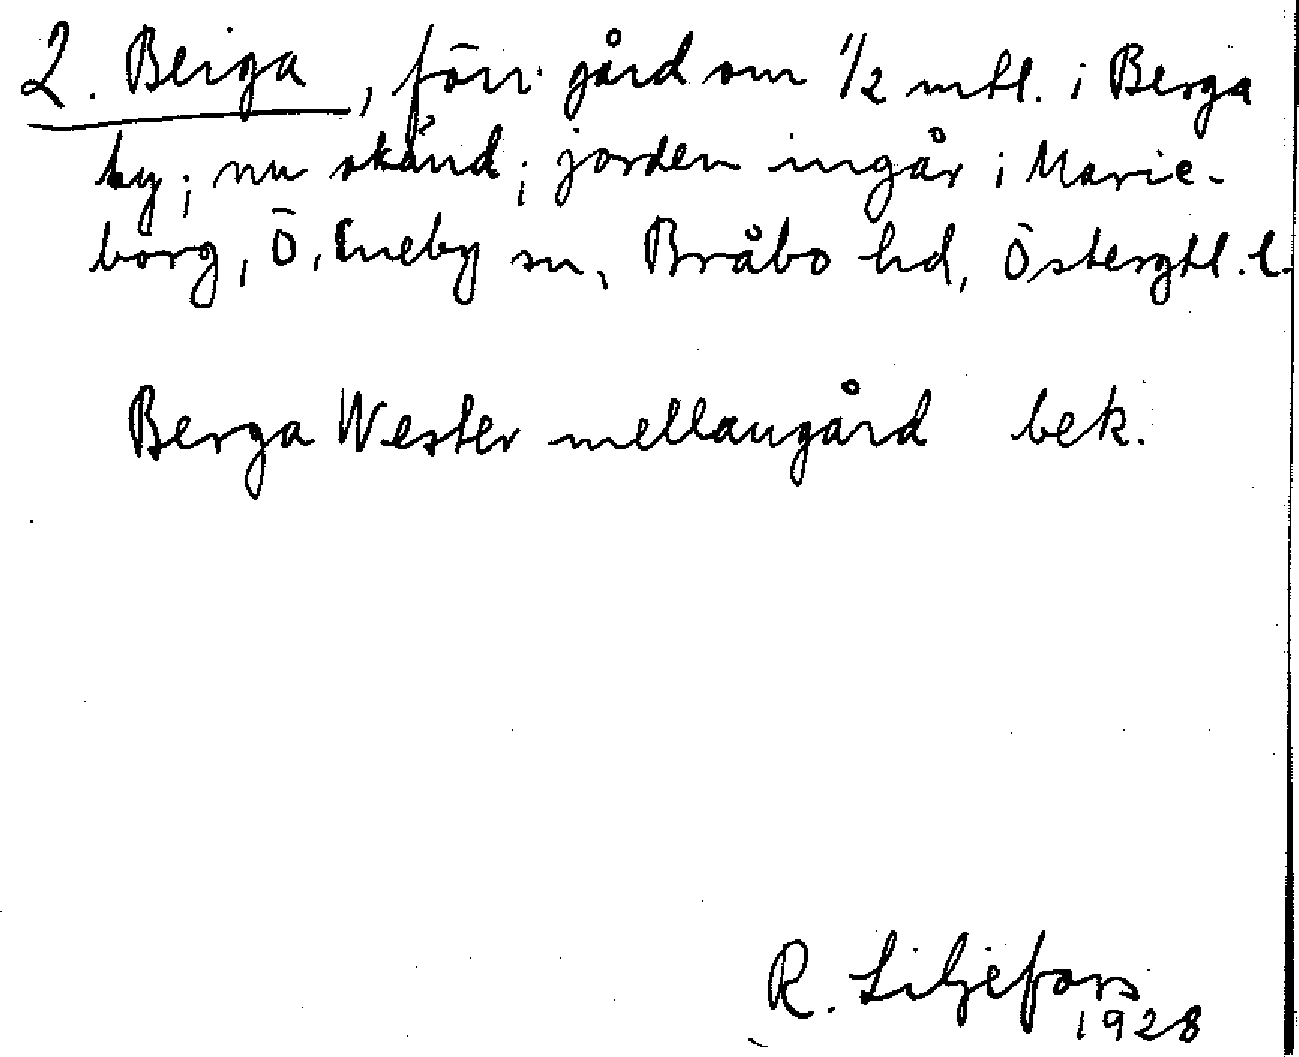 2. Berga, förr gård om 1/2 mtl. i Berga
by; nu okänd; jorden ingår i Marie-
borg, Ö. Eneby sn, Bråbo hd, Östergtl. l.
Berga Wester mellangård bek.
R. Liljefors
1928